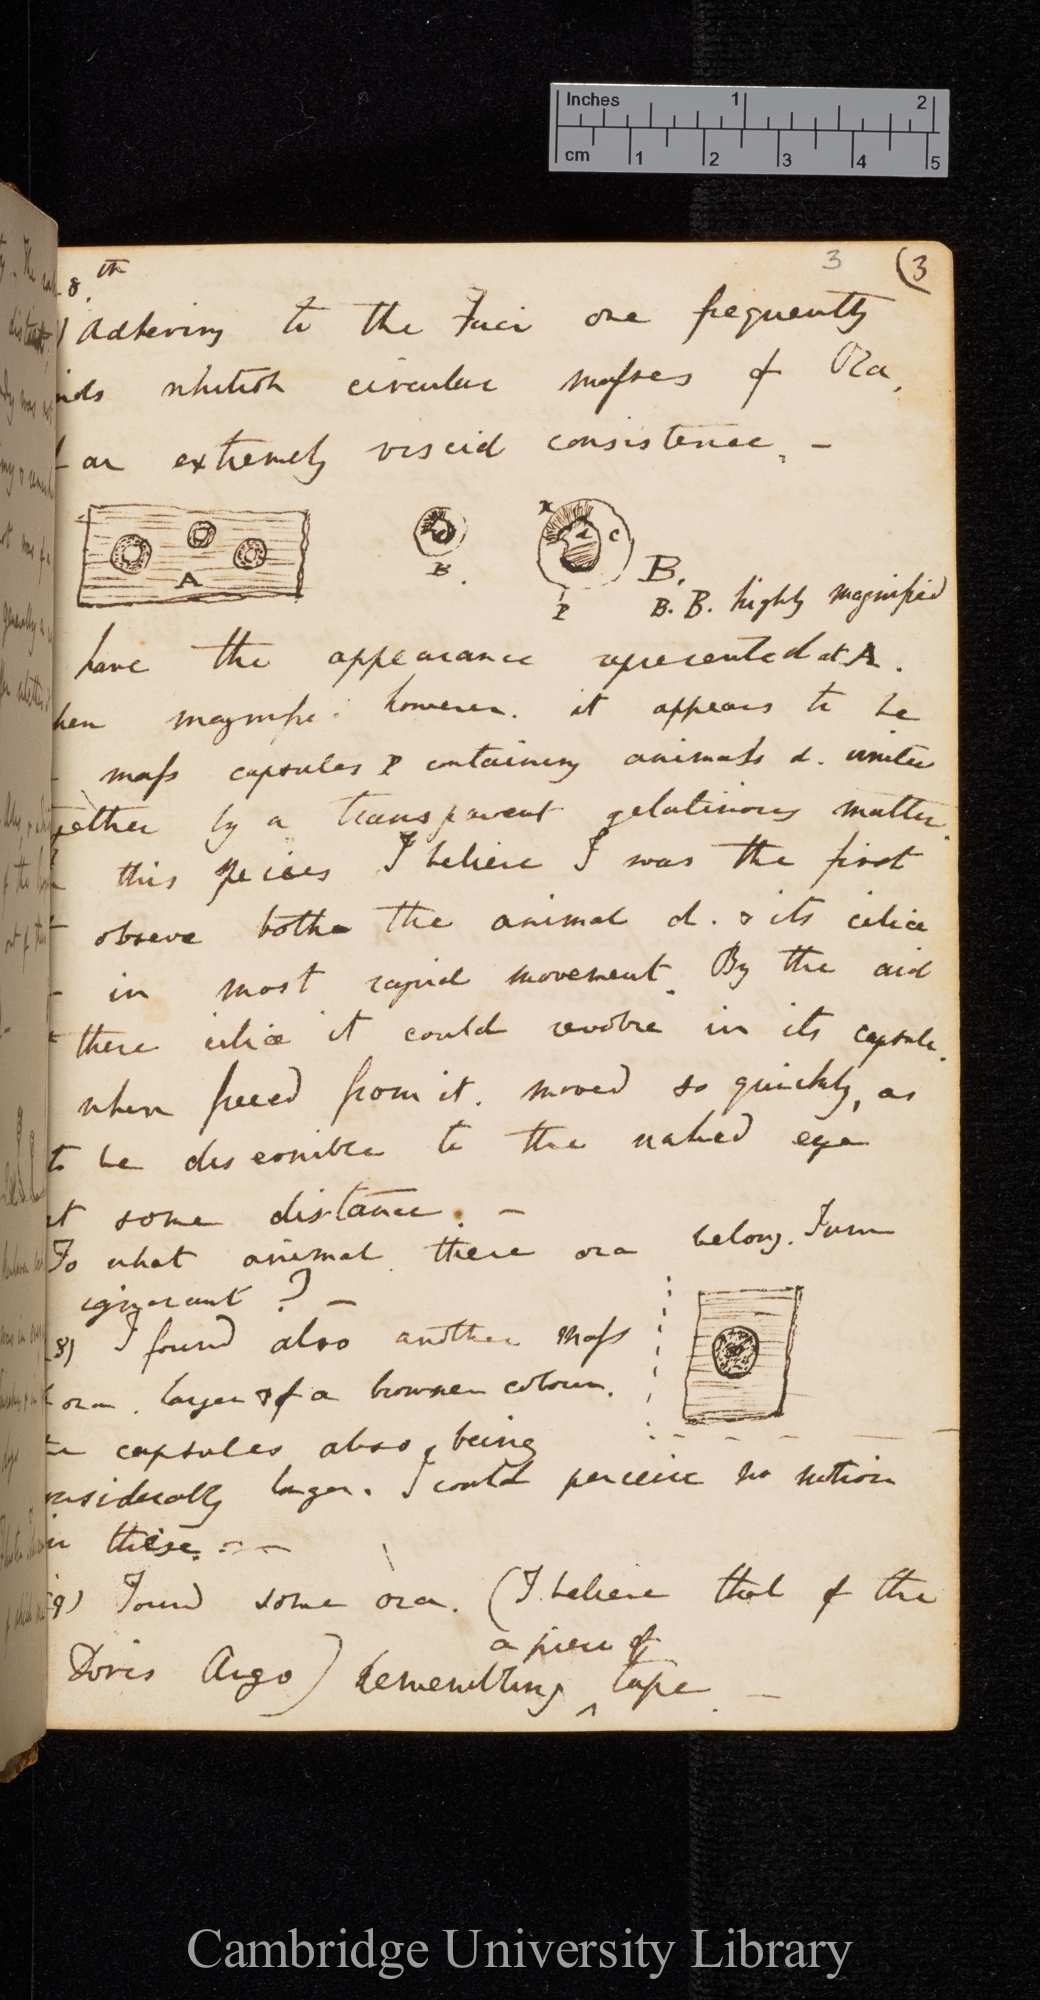 Inches 1 2
cm 1 2 3 4 5
3 (3
8.th
) Adhering to the Fuci one frequently
nds whitish circular masses of Ova,
f an extremely viscid consistence. —
A
B.
x d c P B.
B. B. highly magnified
have the appearance represented at A.
hen magnifie: however. it appears to be
mass capsules P containing animals d. unites
gether by a transparent gelatinous matter.
this peices I believe I was the first
observe both the animal d. & its ciliæ
– in most rapid movement. By the aid
these ciliæ it could revolve in its capsule.
when freed from it. moved so quickly, as
to be discernible to the naked eye
at some distance. —
To what animal these ova belong. I am
ignorant? —
8) I found also another mass
ova. larger & of a browner colour.
capsules also, being
nsiderably larger. I could perceive no motion
in these. – –
9) Found some ova. (I believe that of the
a piece of
Doris Argo) resembling ^ tape. —
Cambridge University Library